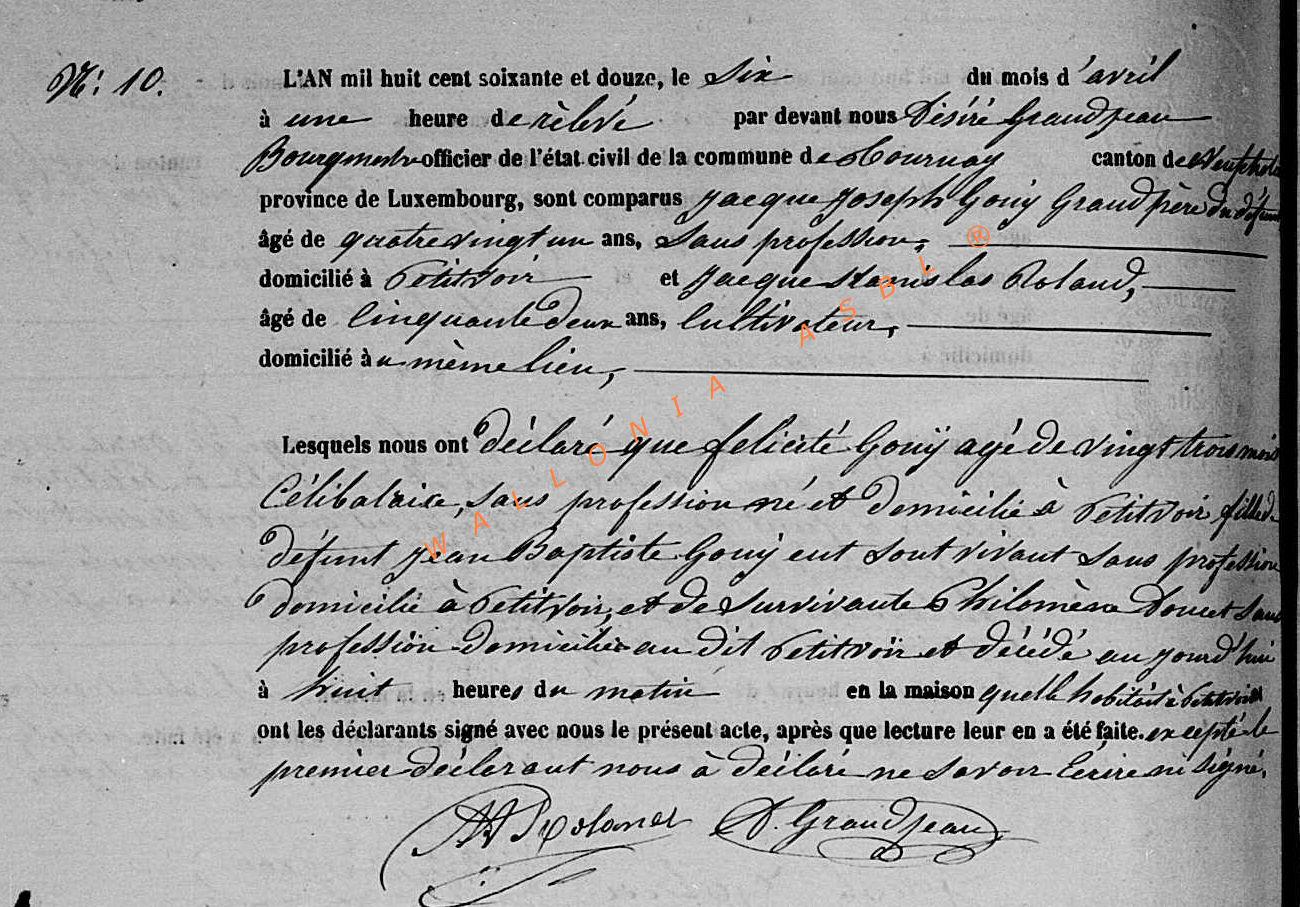 N: 10.
L'AN mil huit cent soixante et douze, le Six du mois d'avril
à une heure de rèlevé par devant nous Désiré Grandjean
Bourgmestre officier de l'état civil de la commune de Tournay canton de Neufchâteau
province de Luxembourg, sont comparus Jacque Joseph Gouÿ Grand père du défunt
âgé de quatrevingt un ans, Sans profession,
domicilié à Petitvoir et Jacque Stanislas Roland,
âgé de Cinquante deux ans, Cultivateur,
domicilié au même lieu,
Lesquels nous ont déclaré que felicité Gouÿ agé de vingt trois mois
Célibataire, sans profession né et domicilié à Petitvoir fille de
défunt Jean Baptiste Gouÿ eut sout vivant sans profession
domicilié à Petitvoir, et de Survivante Philomène Doucet sans
profession domicilié au dit Petitvoir et décédé aujourd'hui
à huit heures du matin en la maison quelle habitait à Petitvoir
ont les déclarants signé avec nous le présent acte, après que lecture leur en a été faite. excepté le
premier déclarant nous à déclaré ne Savoir Ecrire ni Signé.
Roland D. Grandjean
WALLONIA ASBL ®